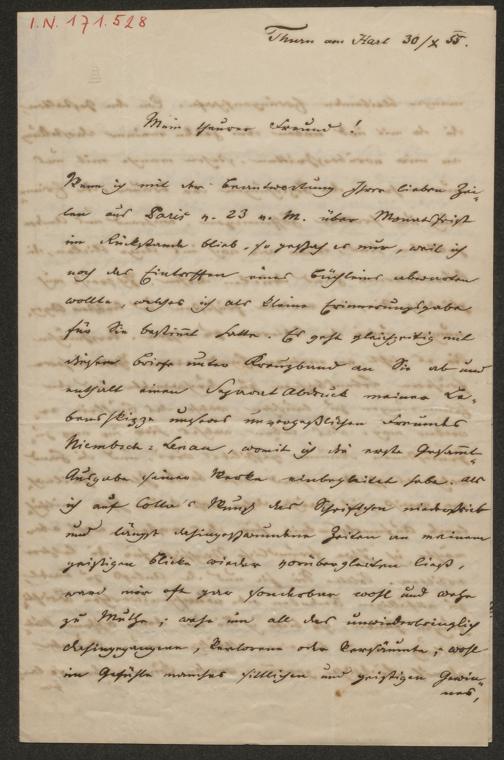 I.N. 171.528
Thurn am Hart 30/X 55.
Mein theurer Freund!
Wenn ich mit der Beantwortung Ihrer lieben Zei-
len aus Paris v. 23 v. M. über Monatsfrist
im Rückstande blieb, so geschah es nur, weil ich
noch das Eintreffen eines Büchleins abwarten
wollte, welches ich als kleine Erinnerungsgabe
für Sie bestimmt hatte. Es geht gleichzeitig mit
diesem Briefe unter Kreuzband an Sie ab und
enthält einen Separat Abdruck meiner Le-
bensskizze unseres unvergeßlichen Freundes
Niembsch-Lenau, womit ich die erste Gesammt-
Ausgabe seiner Werke eingeleitet habe. Als
ich auf Cotta's Wunsch das Schriftchen niederschrieb
und längst dahingeschwundene Zeiten an meinem
geistigen Blicke wieder vorübergleiten ließ,
ward mir oft gar sonderbar wohl und wehe
zu Muthe; wehe um all das unwiederbringlich
Dahingegangene, Verlorene oder Versäumte; wohl
im Gefühle manches sittlichen und geistigen Gewin-
nes,